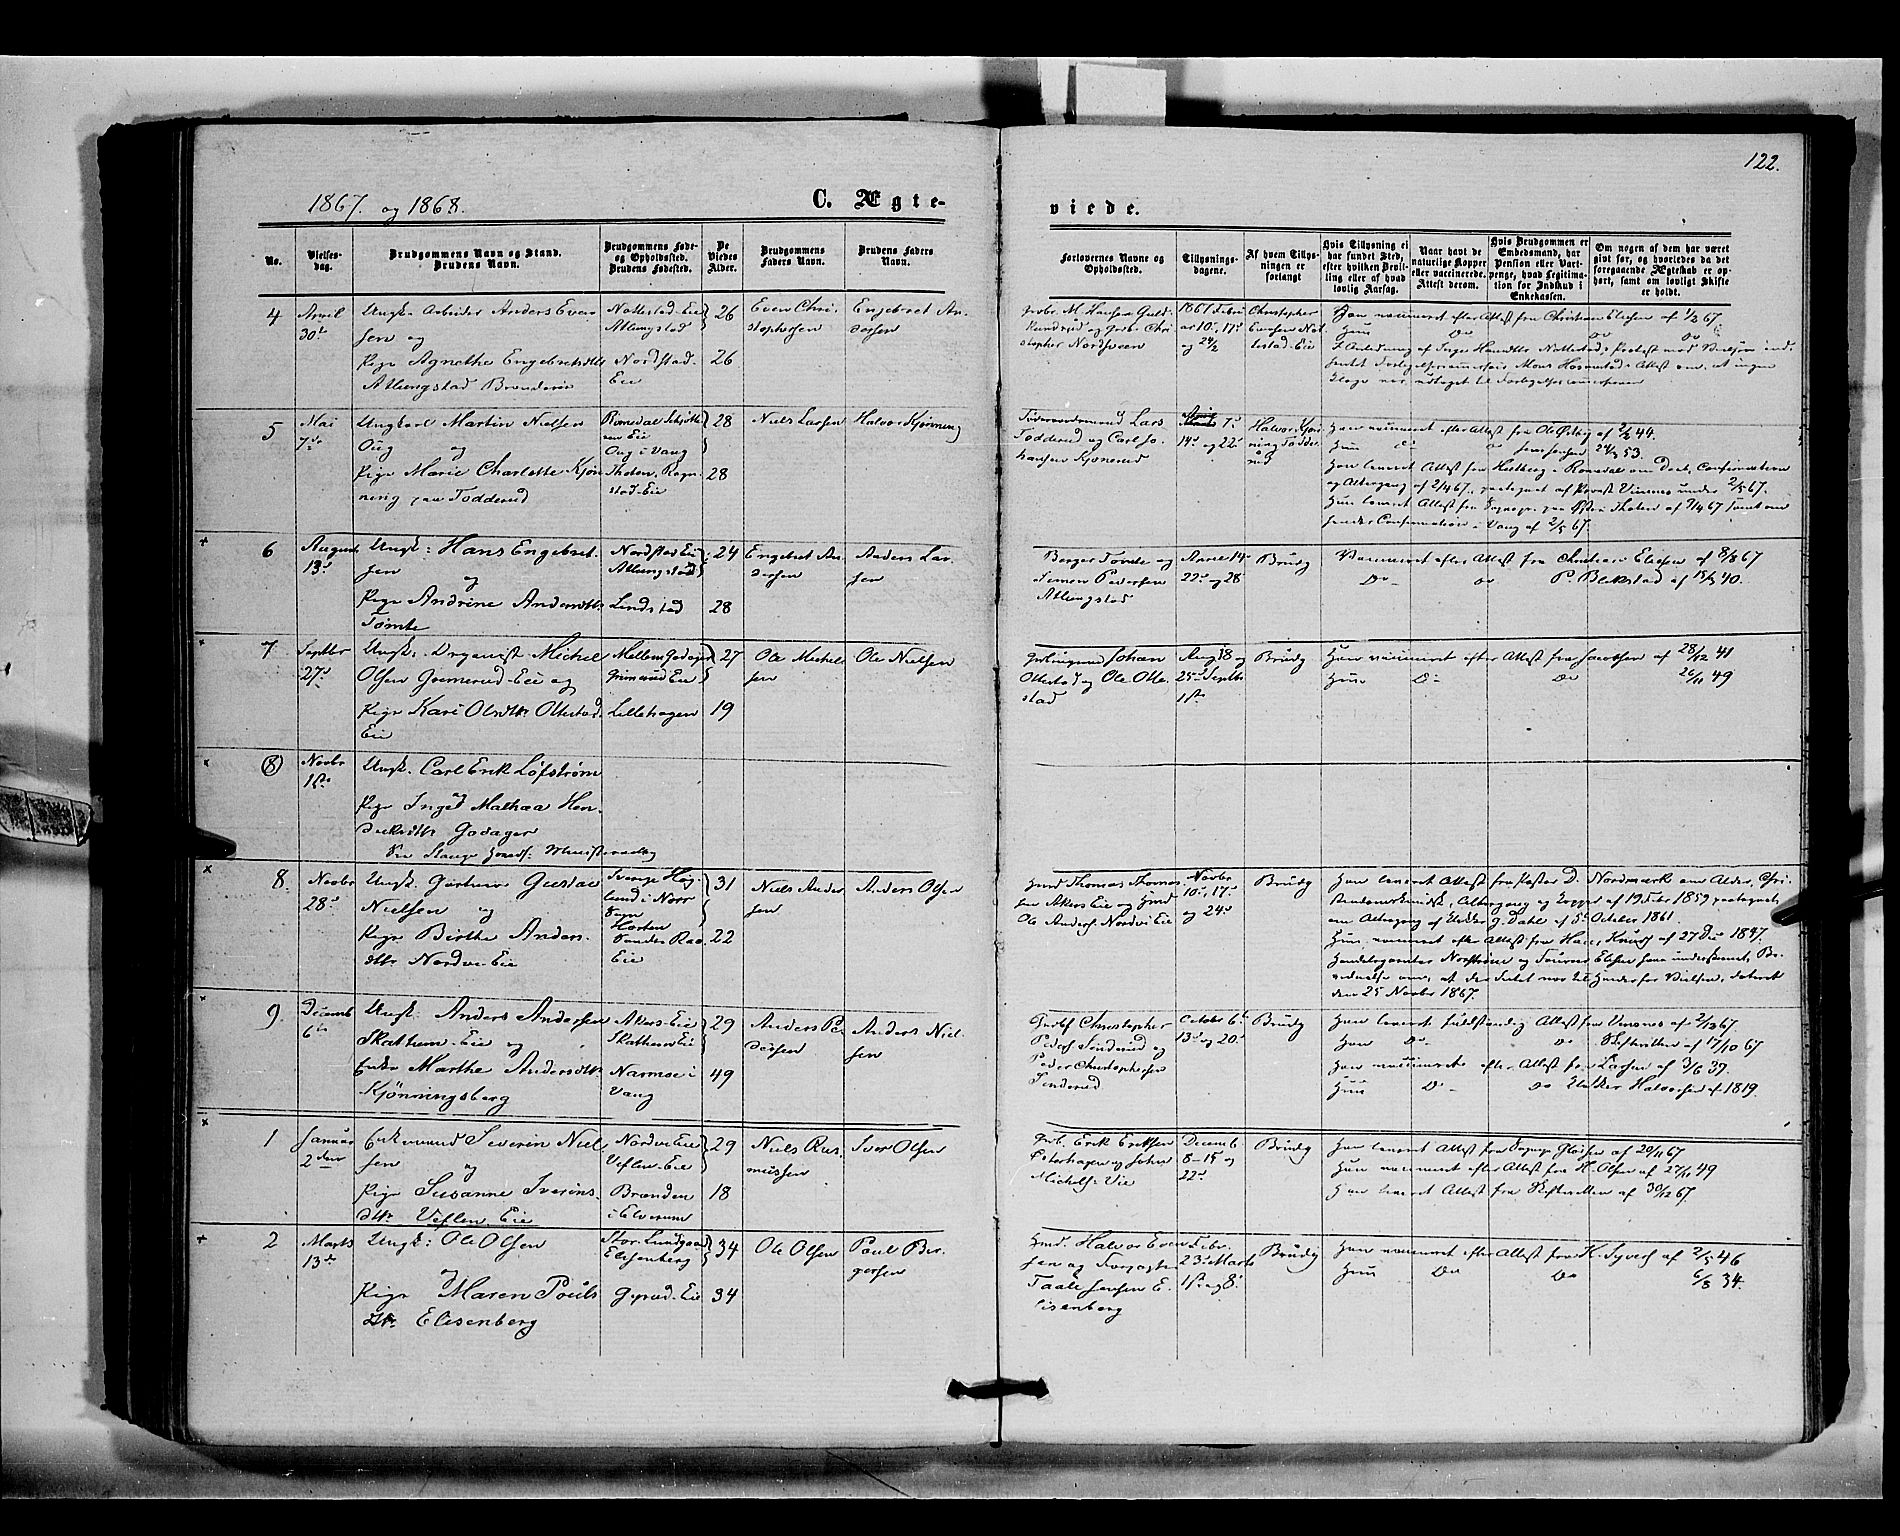 122.
1867. og 1868.
C. Ægte-
viede.
No.
Vielses-
dag.
Brudgommens Navn og Stand.
Brudens Navn.
Brudgommens Føde-
og Opholdssted.
Brudens Fødested.
De
Viedes
Alder.
Brudgommens
Faders Navn.
Brudens Faders
Navn.
Forlovernes Navne og
Opholdssted.
Tillysnings-
dagene.
Af hvem Tillys-
ningen er
forlangt
Hvis Tillysning ei
har fundet Sted,
efter hvilken Bevil-
ling eller af hvad
lovlig Aarsag.
Naar havt de
naturlige Kopper
eller vaccinerede.
Attest derom.
Hvis Brudgommen er
Embedsmand, har
Pension eller Vart-
penge, hvad Legitima-
tion for Indskud i
Enkekassen.
Om nogen af dem har været
gift før, og hvorledes da det
foregaaende Ægteskab er op-
hørt, samt om lovligt Skifte
er holdt.
4
April
30te
Ungk. Arbeider Anders Even
sen og
Pige Agnethe Engebretsdtr
Atlungstad Brænderi
Nottestad-Eie
Atlungstad
Nordstad-
Eie
26
26
Even Chri-
stophersen
Engebret An-
dersen
Gbr. M. Hansen Guld-
og Gbr. Chri
stopher Nordsveen
1867 Febru
ar 10de, 17de
og 24/2
Christopher
Evensen Not-
testad-Eie
Han vaccineret efter Attest fra Christian Eliesen af 1/2 67
Hun Do Do Do
5
Mai
7de
Ungkarl Martin Nielsen
Oug og
Pige Marie Charlotte Kjøn
ning paa Todderud
Romedal
Eie
Oug i Vang
Thoten.
stad-Eie
28
28
Niels Larsen
Halvor Kjønning
Lars
Todderud og Carl Jo-
hansen Kjonerud
April 7de
14de og 22de
Halvor Kjøn
ning Todde-
rud
Han vaccineret efter Attest fra Ole af 2/2 44.
Hun do do Jens Jensen 24/9 53.
Han leveret Attest fra i Romedal om Daab, Confirmation
og Altergang af 2/4 67, paategnet af Provst Vinsnes under 2/5 67.
Hun leveret Attest fra Sognepr. paa Østre Thoten af 7/4 67 samt om
hendes Confirmation i Vang af 2/5 67.
6
August
13de
Ungk: Hans Engebret-
sen og
Pige Andrine Andersdtr
Tomte
Nordstad Eie
Atlungstad
Lindstad
24
28
Engebret An-
dersen
Anders Lar-
sen
Berger Tomte og
Simen Pedersen
Atlungstad
14de
22de og 28
Brudg
Vaccineret efter Attest fra Christian Eliesen af 8/8 67
Do- do P. Blekstad af 15/9 40.
7
Septbr
27de
Ungk: Organist Michel
Olsen Grimerud-Eie og
Pige Kari Olsdtr Ottestad-
Eie
Mellem Godager
Grimerud Eie
Lillehagen
27
19
Ole Michel-
sen
Ole Nielsen
Johan
Ottestad og Ole Otte-
stad
Aug 18 og
25de Septb
1ste
Brudg
Han vaccineret efter Attest fra Jacobsen af 28/12 41
Hun D- Do 26/11 49
(8)
Novbr
1ste
Ungk. Carl Erik Løfstrøm
Pige Inge Mathea Hen-
driksdtr Godager
8.
Novbr
28de
Ungk. Gartner Gustav
Nielsen og
Pige Birthe Anders-
dtr Nordvi-Eie
Sverige Høg-
lund i Norr
Horten
Søndre Rao
Eie
31
22
Niels Ander
sen
Anders Olsen
Hmd Thomas Thomas
sen Akers Eie og Hmd
Ole Anders. Nordvi Eie
Novbr
10de, 17de
og 24de
Brudg
Han leveret Attest fra Pastor D. Nordmark om Alder, Chri-
stendomskundsk., Altergang og Kopper af 19 Febr 1859 paategnet,
om Altergang af Dahl af 5te October 1861.
Hun vaccineret efter Attest fra af 27 Dec 1847.
den 25 Novbr 1867.
9.
Decemb
6te
Ungk: Anders Andersen
Skattum-Eie og
Enke Marthe Andersdtr
Kjønningsberg
Akers-Eie
Skattum Eie
Narmoe i
Vang
29
49
Anders Pe-
dersen
Anders Niel-
sen
Christopher
Peders. Sinderud og
Peder Christophersen
Sinderud
Octobr 6te
13de og 20de
Brudg
Han leveret fuldstændig Attest fra Vinsnes af 2/12 67
Hun Do- Do Skifteretten af 17/10 67
Han vaccineret efter Attest fra Larsen af 3/6 39.
Hun D- Do Halvorsen af 1819.
1
Januar
2den
Enkemand Severin Niel
sen og
Pige Susanne Ivers-
dtr Veflen Eie
Nordvi Eie
Veflen-Eie
Brænden
i Elverum
29
18
Niels Ras-
mussen
Iver Olsen
Gbr. Erik Eriksen
Østerhagen og Johan
Michels. Vie
Decemb
8-15 og
22de
Brudg
Han leveret Attest fra Sognepr. af 20/11 67
Hun vaccineret efter Attest fra H. Olsen af 27/11 49
Han leveret Attest fra Skifteretten af 30/12 67
2
Marts
13de
Ungk: Ole Olsen
og
Pige Maren Pouls
dtr Elisenberg
Stor-Lundgaard
Elisenberg
Gprud-Eie
34
34
Ole Olsen
Poul Bir-
gersen
Hmd. Halvor Even
sen og Forpagter
Taale Jensen E-
lisenberg
Febr.
23de Marts
1ste og 8de
Brudg
Han vaccineret efter Attest fra K. Syvers. af 2/5 46
Hun Do Do 6/8 34.